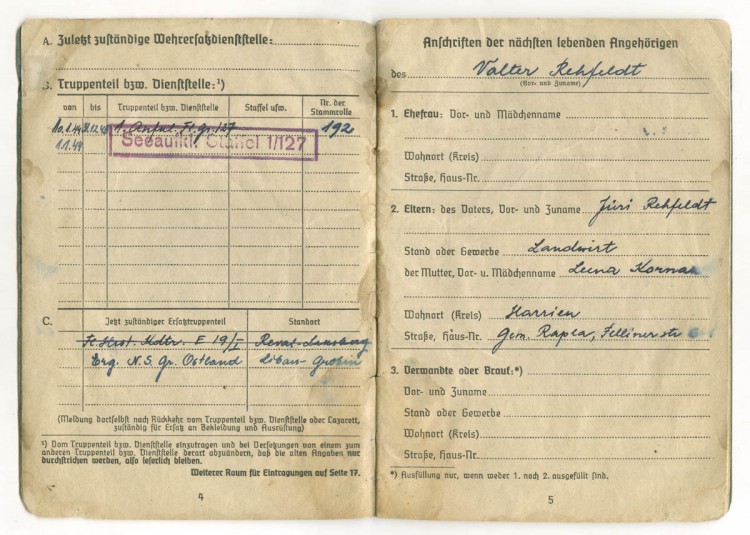 A. Zuletzt zuständige Wehrersatzdienststelle:
B. Truppenteil bzw. Dienststelle:¹)
von bis Truppenteil bzw. Dienststelle Staffel usw. Nr. der Stammrolle
31.12.43 1. Aufkl. Fl. gr. 127 192
1.1.44 Seeaufkl. Staffel 1/127
C. Jetzt zuständiger Ersatztruppenteil Standort
E 19/I Reval-
Erg. N.S. Gr. Ostland Libau-Grobin
(Meldung dortselbst nach Rückkehr vom Truppenteil bzw. Dienststelle oder Lazarett,
zuständig für Ersatz an Bekleidung und Ausrüstung)
¹) Vom Truppenteil bzw. Dienststelle einzutragen und bei Versetzungen von einem zum
anderen Truppenteil bzw. Dienststelle derart abzuändern, daß die alten Angaben nur
durchstrichen werden, also leserlich bleiben.
Weiterer Raum für Eintragungen auf Seite 17.
4
Anschriften der nächsten lebenden Angehörigen
des Valter Rehfeldt
(Vor- und Zuname)
1. Ehefrau: Vor- und Mädchenname
Wohnort (Kreis)
Straße, Haus-Nr.
2. Eltern: des Vaters, Vor- und Zuname Jüri Rehfeldt
Stand oder Gewerbe Landwirt
der Mutter, Vor- u. Mädchenname Leena
Wohnort (Kreis) Harrien
Straße, Haus-Nr. Gem. Rapla, Felliner str
3. Verwandte oder Braut:*)
Vor- und Zuname
Stand oder Gewerbe
Wohnort (Kreis)
Straße, Haus-Nr.
*) Ausfüllung nur, wenn weder 1. noch 2. ausgefüllt sind.
5